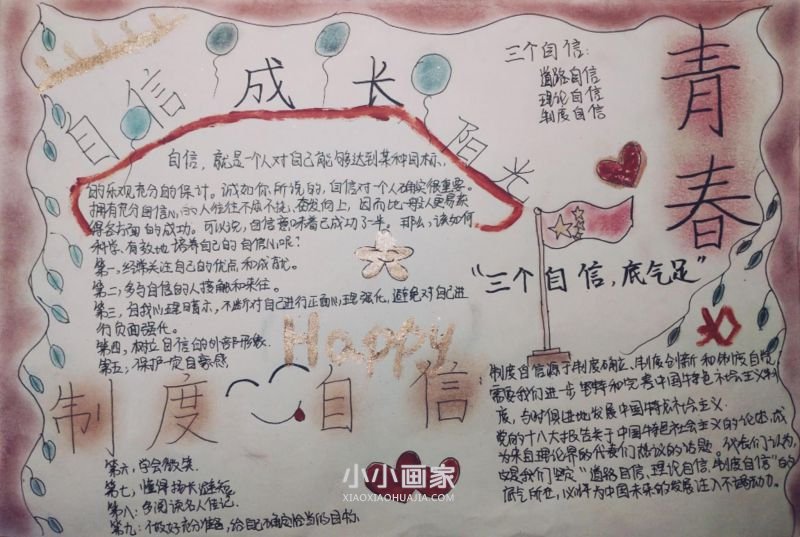 自信 成长 阳光
青春
三个自信:
道路自信
理论自信
制度自信
自信,就是一个人对自己能够达到某种目标,
的乐观充分的保计。诚如你所说的,自信对一个人确实很重要。
拥有充分自信心的人往往不屈不挠,奋发向上,因而比一般人更易获
得各方面的成功。可以说,自信意味着已成功了一半。那么,该如何
科学、有效地培养自己的自信心呢?
第一,经常关注自己的优点和成就。
第二,多与自信的人接触和来往。
第三,自我心理暗示,不断对自己进行正面心理强化,避免对自己进
行负面强化。
第四,树立自信的外部形象。
第五,保护一定自豪感
"三个自信,底气足"
Happy
制度自信
第六,学会微笑.
第七,懂得扬长避短
第八:多阅读名人传记.
第九:做好充分准备,给自己确定恰当的目标
制度自信源于制度确立、制度创新和制度自觉,
需要我们进一步坚持和完善中国特色社会主义制
度,与时俱进地发展中国特色社会主义.
党的十八大报告关于中国特色社会主义的论述,成
为来自理论界的代表们热议的话题。代表们认为,
这是我们坚定"道路自信、理论自信、制度自信"的
底气所在,必将为中国未来的发展注入不竭动力。
小小画家
XIAOXIAOHUAJIA.COM